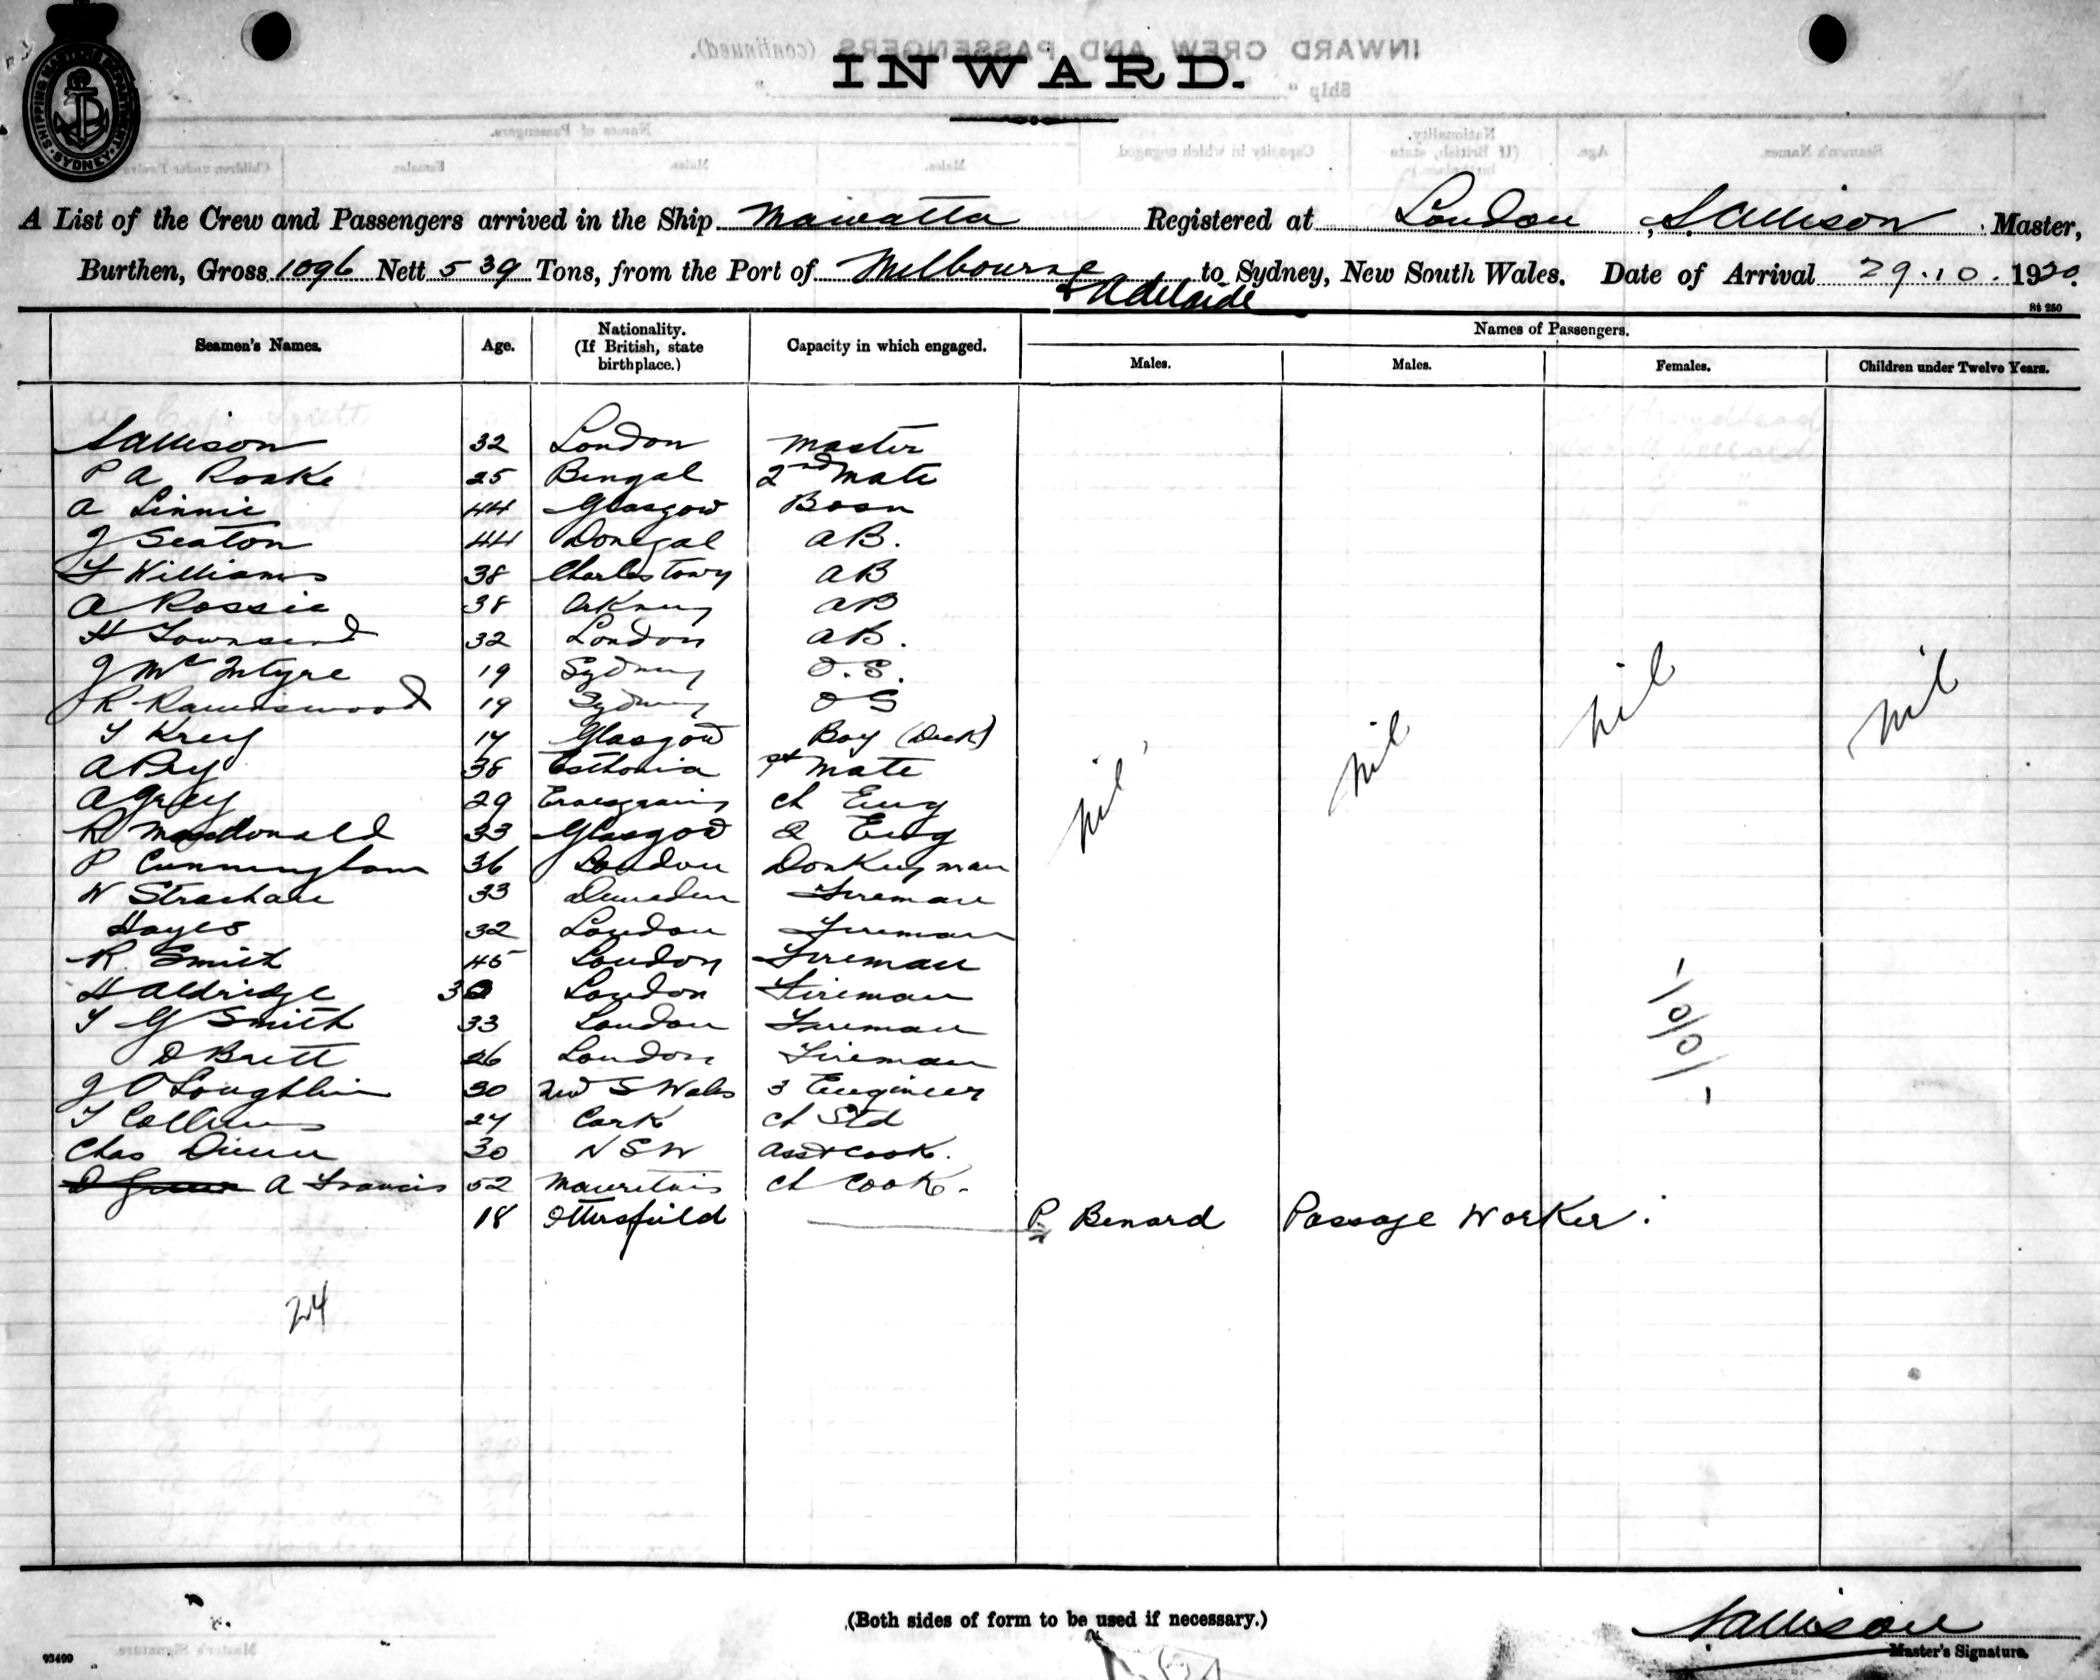 INWARD.
A List of the Crew and Passengers arrived in the Ship Maiwatta Registered at London, S Allison Master,
Burthen, Gross 1096 Nett 539 Tons, from the Port of Melbourne & Adelaide to Sydney, New South Wales. Date of Arrival 29.10.1920.
St 250
Seamen's Names. Age. Nationality. (If British, state birthplace.) Capacity in which engaged. Names of Passengers.
Males. Males. Females. Children under Twelve Years.
S Allison 32 London Master
P A Roake 25 Bengal 2nd Mate
A Linnie 44 Glasgow Bosn
J Seaton 44 Donegal AB.
Williams 38 Charlestown AB
A Rossie 38 Orkney AB
H Townsend 32 London AB.
J McIntyre 19 Sydney O.S.
R Ravenswood 19 Sydney OS
Glasgow Boy (Deck)
38 Esthonia 1st Mate
A Grey 29 Ch Eng
R MacDonald 33 Glasgow 2 Eng
P Cunningham 36 London Donkeyman
W Strachan 33 Dunedin Fireman
Hayes 32 London Fireman
R. Smith 45 London Fireman
H Aldridge London Fireman
T G Smith 33 London Fireman
D Brett 26 London Fireman
J O'Loughlin 30 New S Wales 3 Engineer
T Collins Cork Ch Std
Chas 30 NSW Asst Cook.
A Francis 52 Ch Cook.
18 Ottersfield P Benard Passage Worker.
nil nil nil nil
24
(Both sides of form to be used if necessary.)
S Allison
Master's Signature.
93499